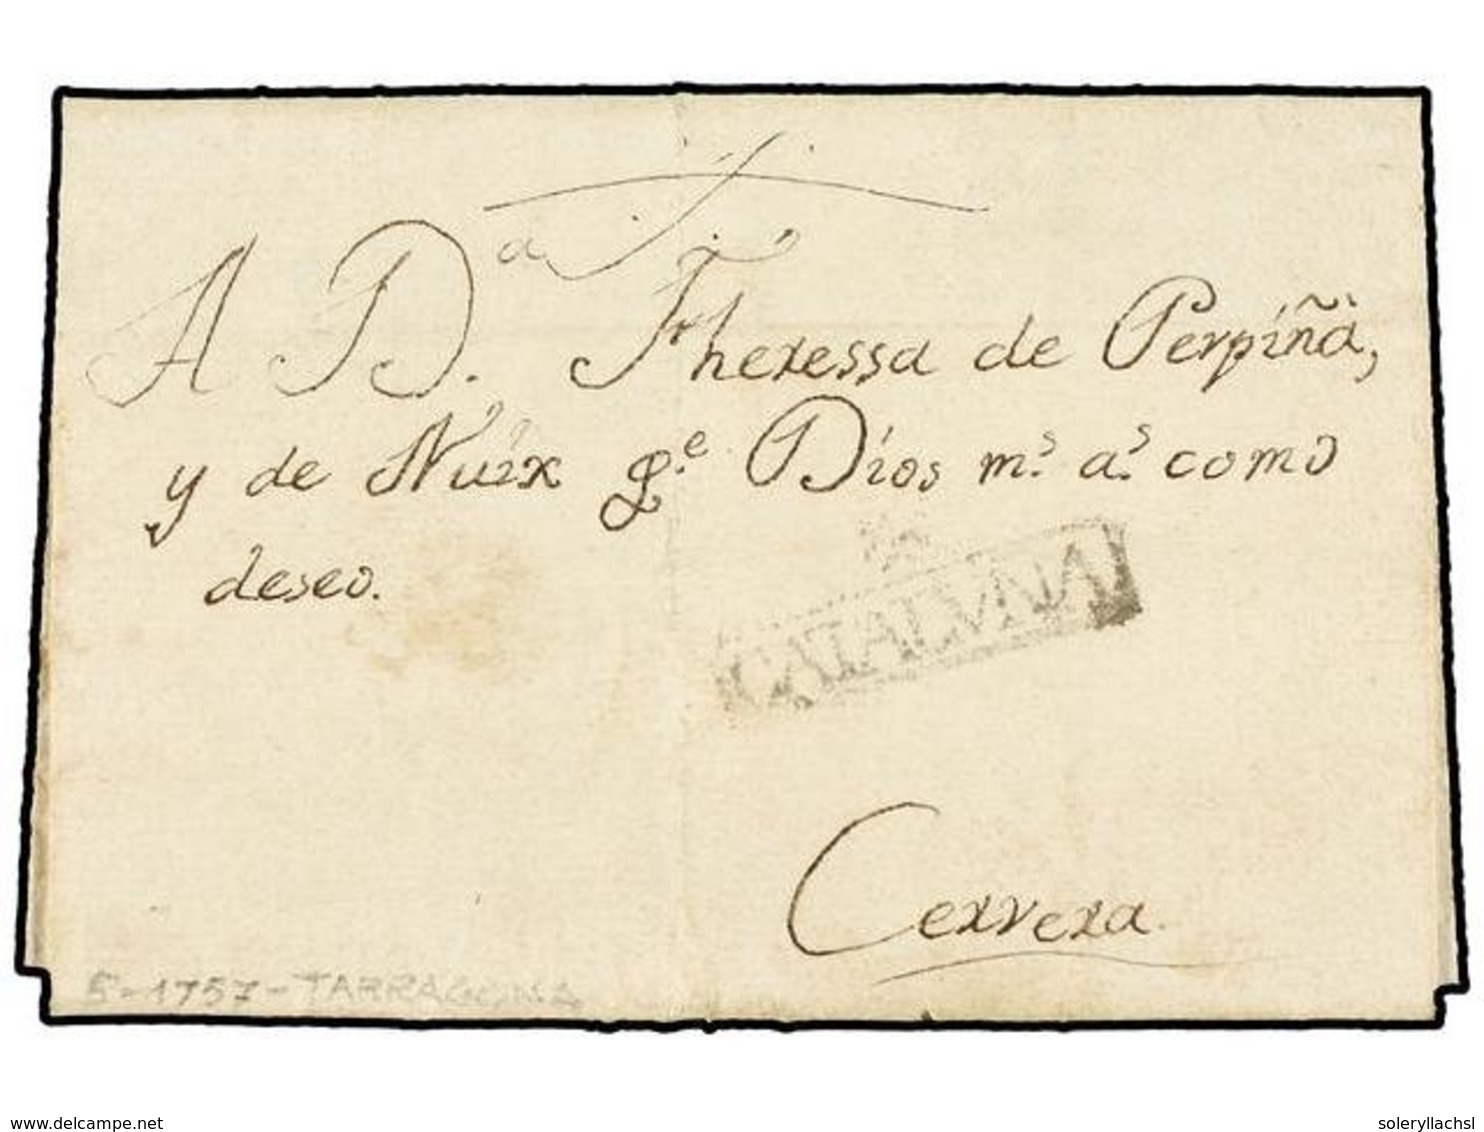 A D.ª Theressa de Perpiñà,
y de Nuix g.e Dios m.s a.s como
deseo.
CATALVÑA
Cervera.
5-1757-TARRAGONA
www.delcampe.net
soleryllachsl